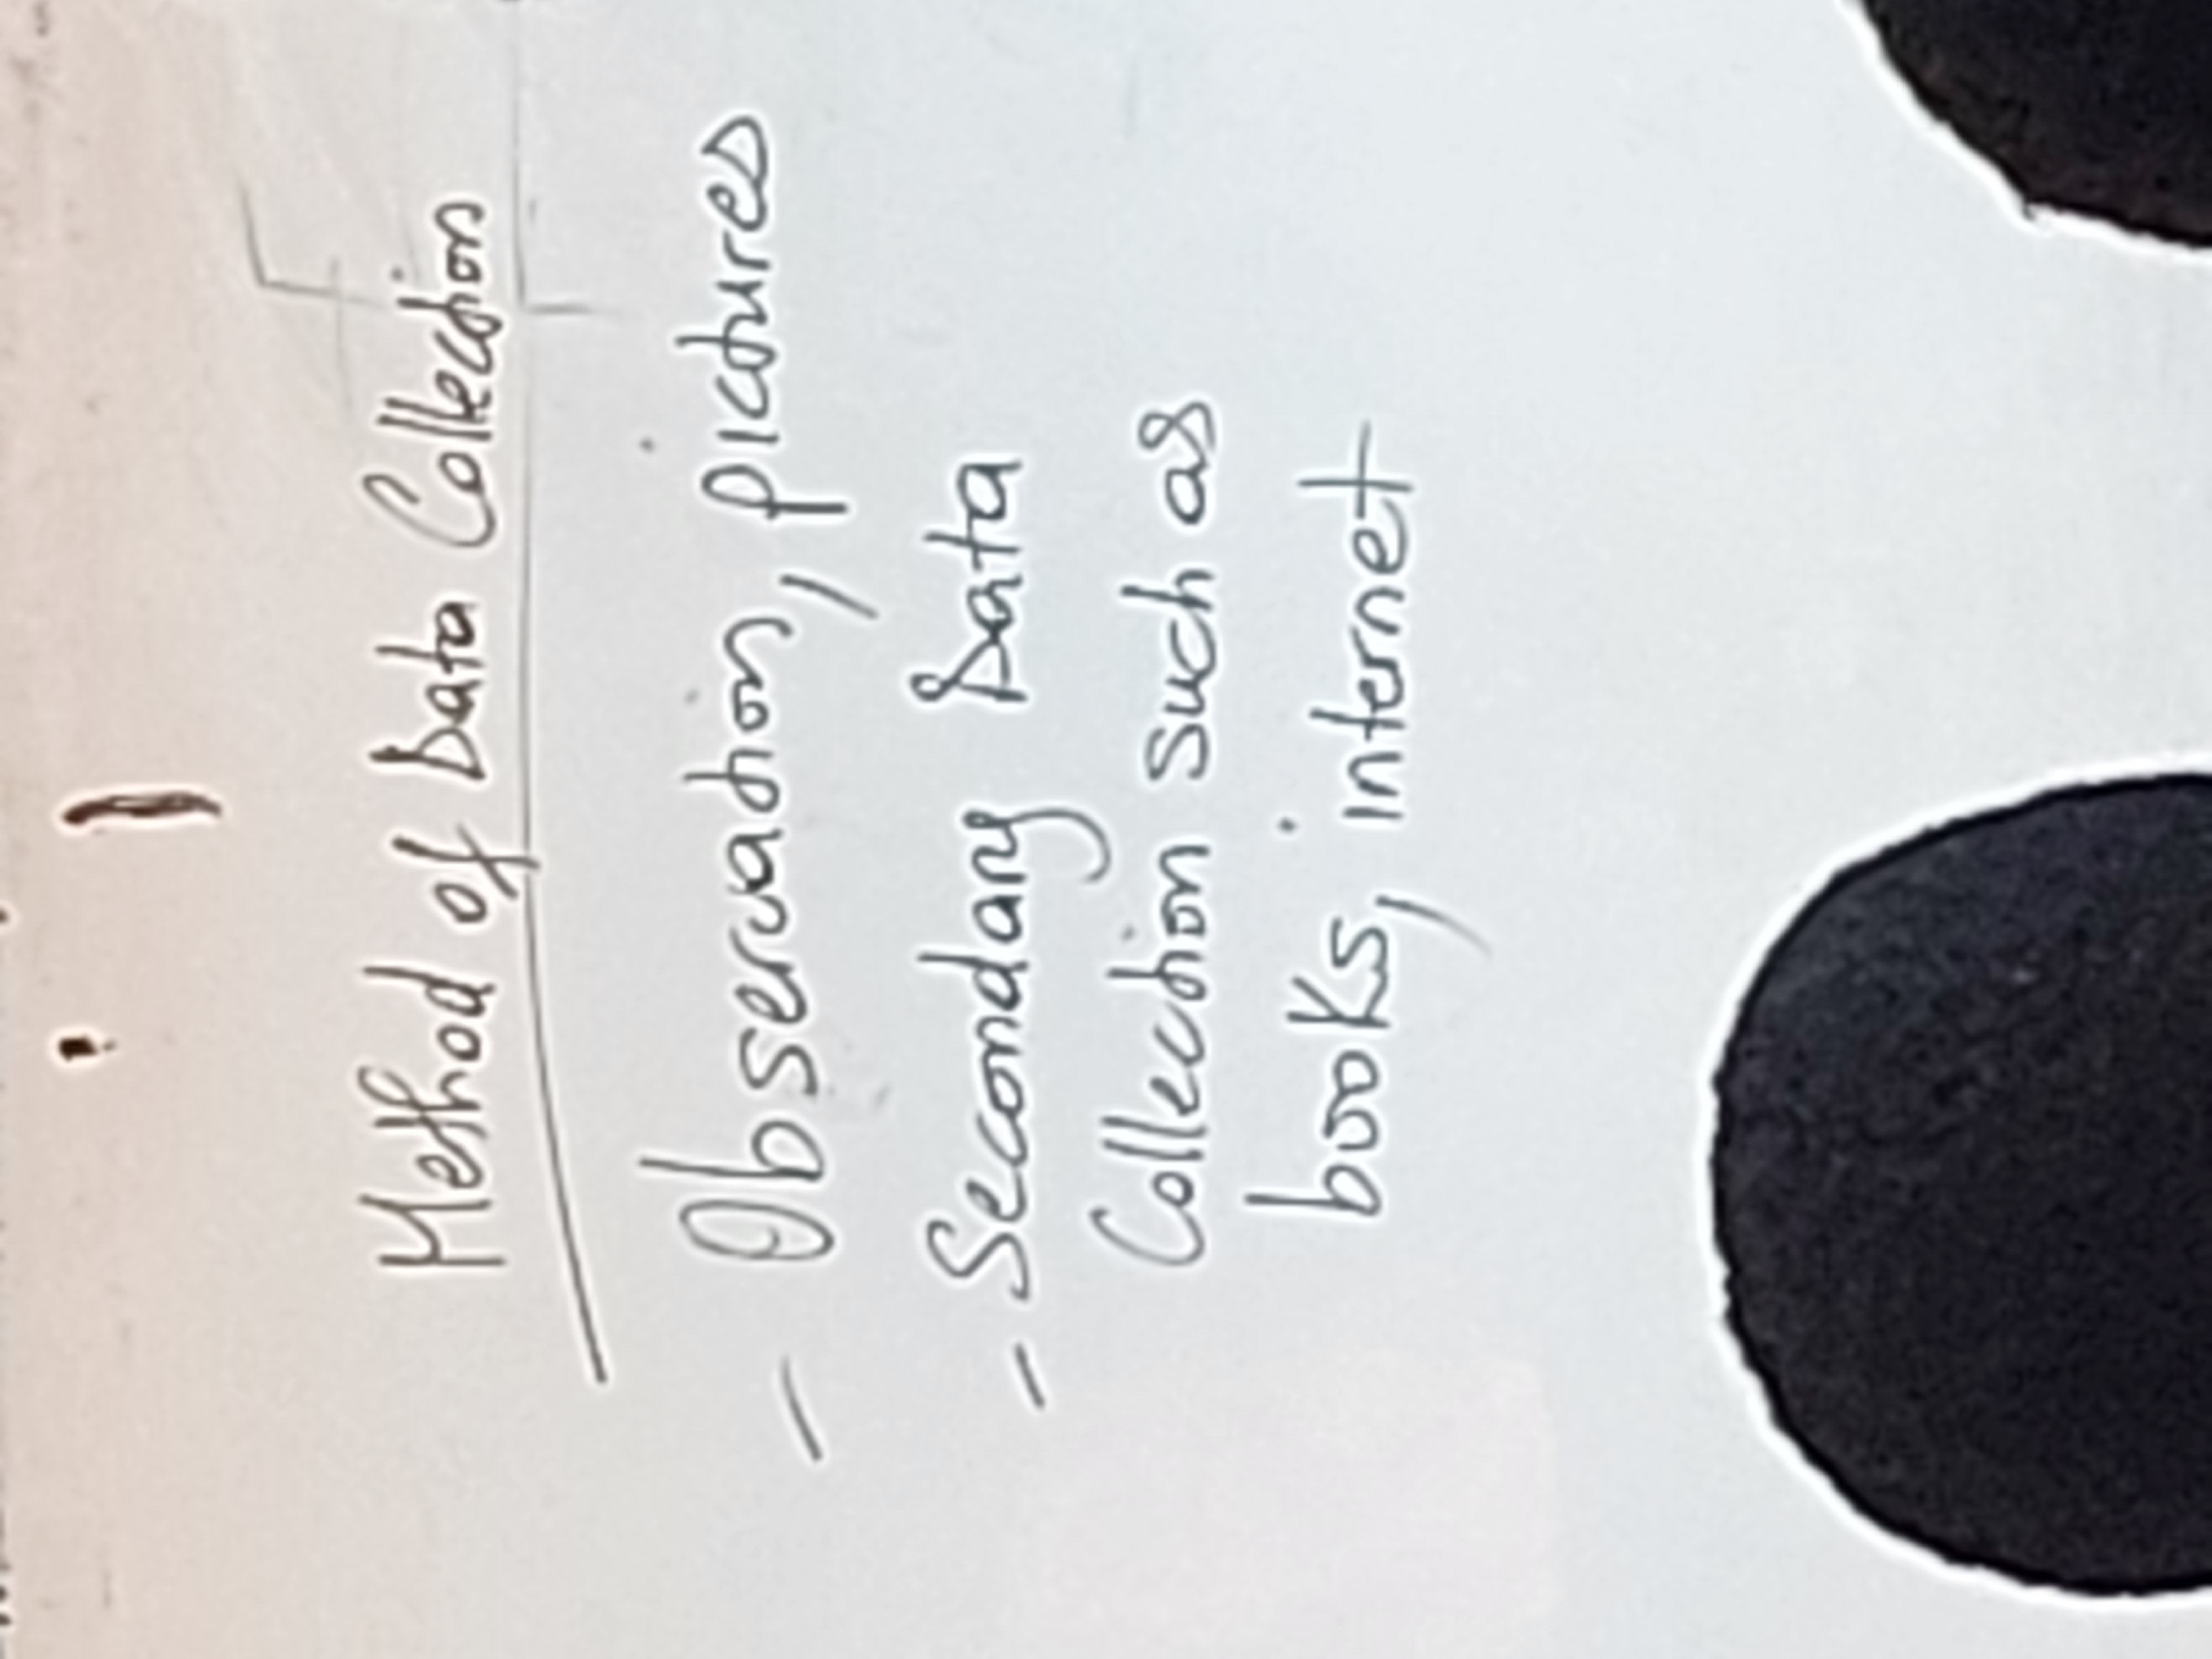 Method of Data Collection
- Observation, pictures
- Secondary Data
Collection such as
books, internet